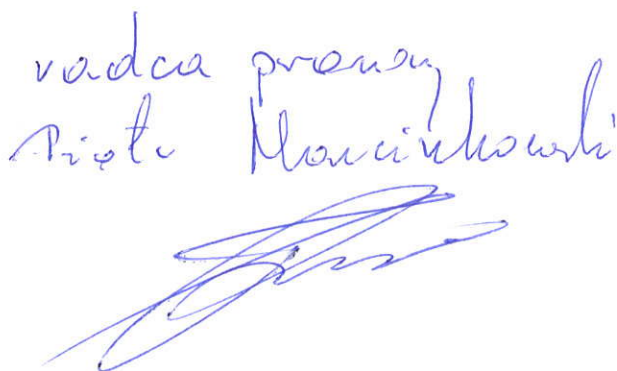 radca prawny
Piotr Marcinkowski